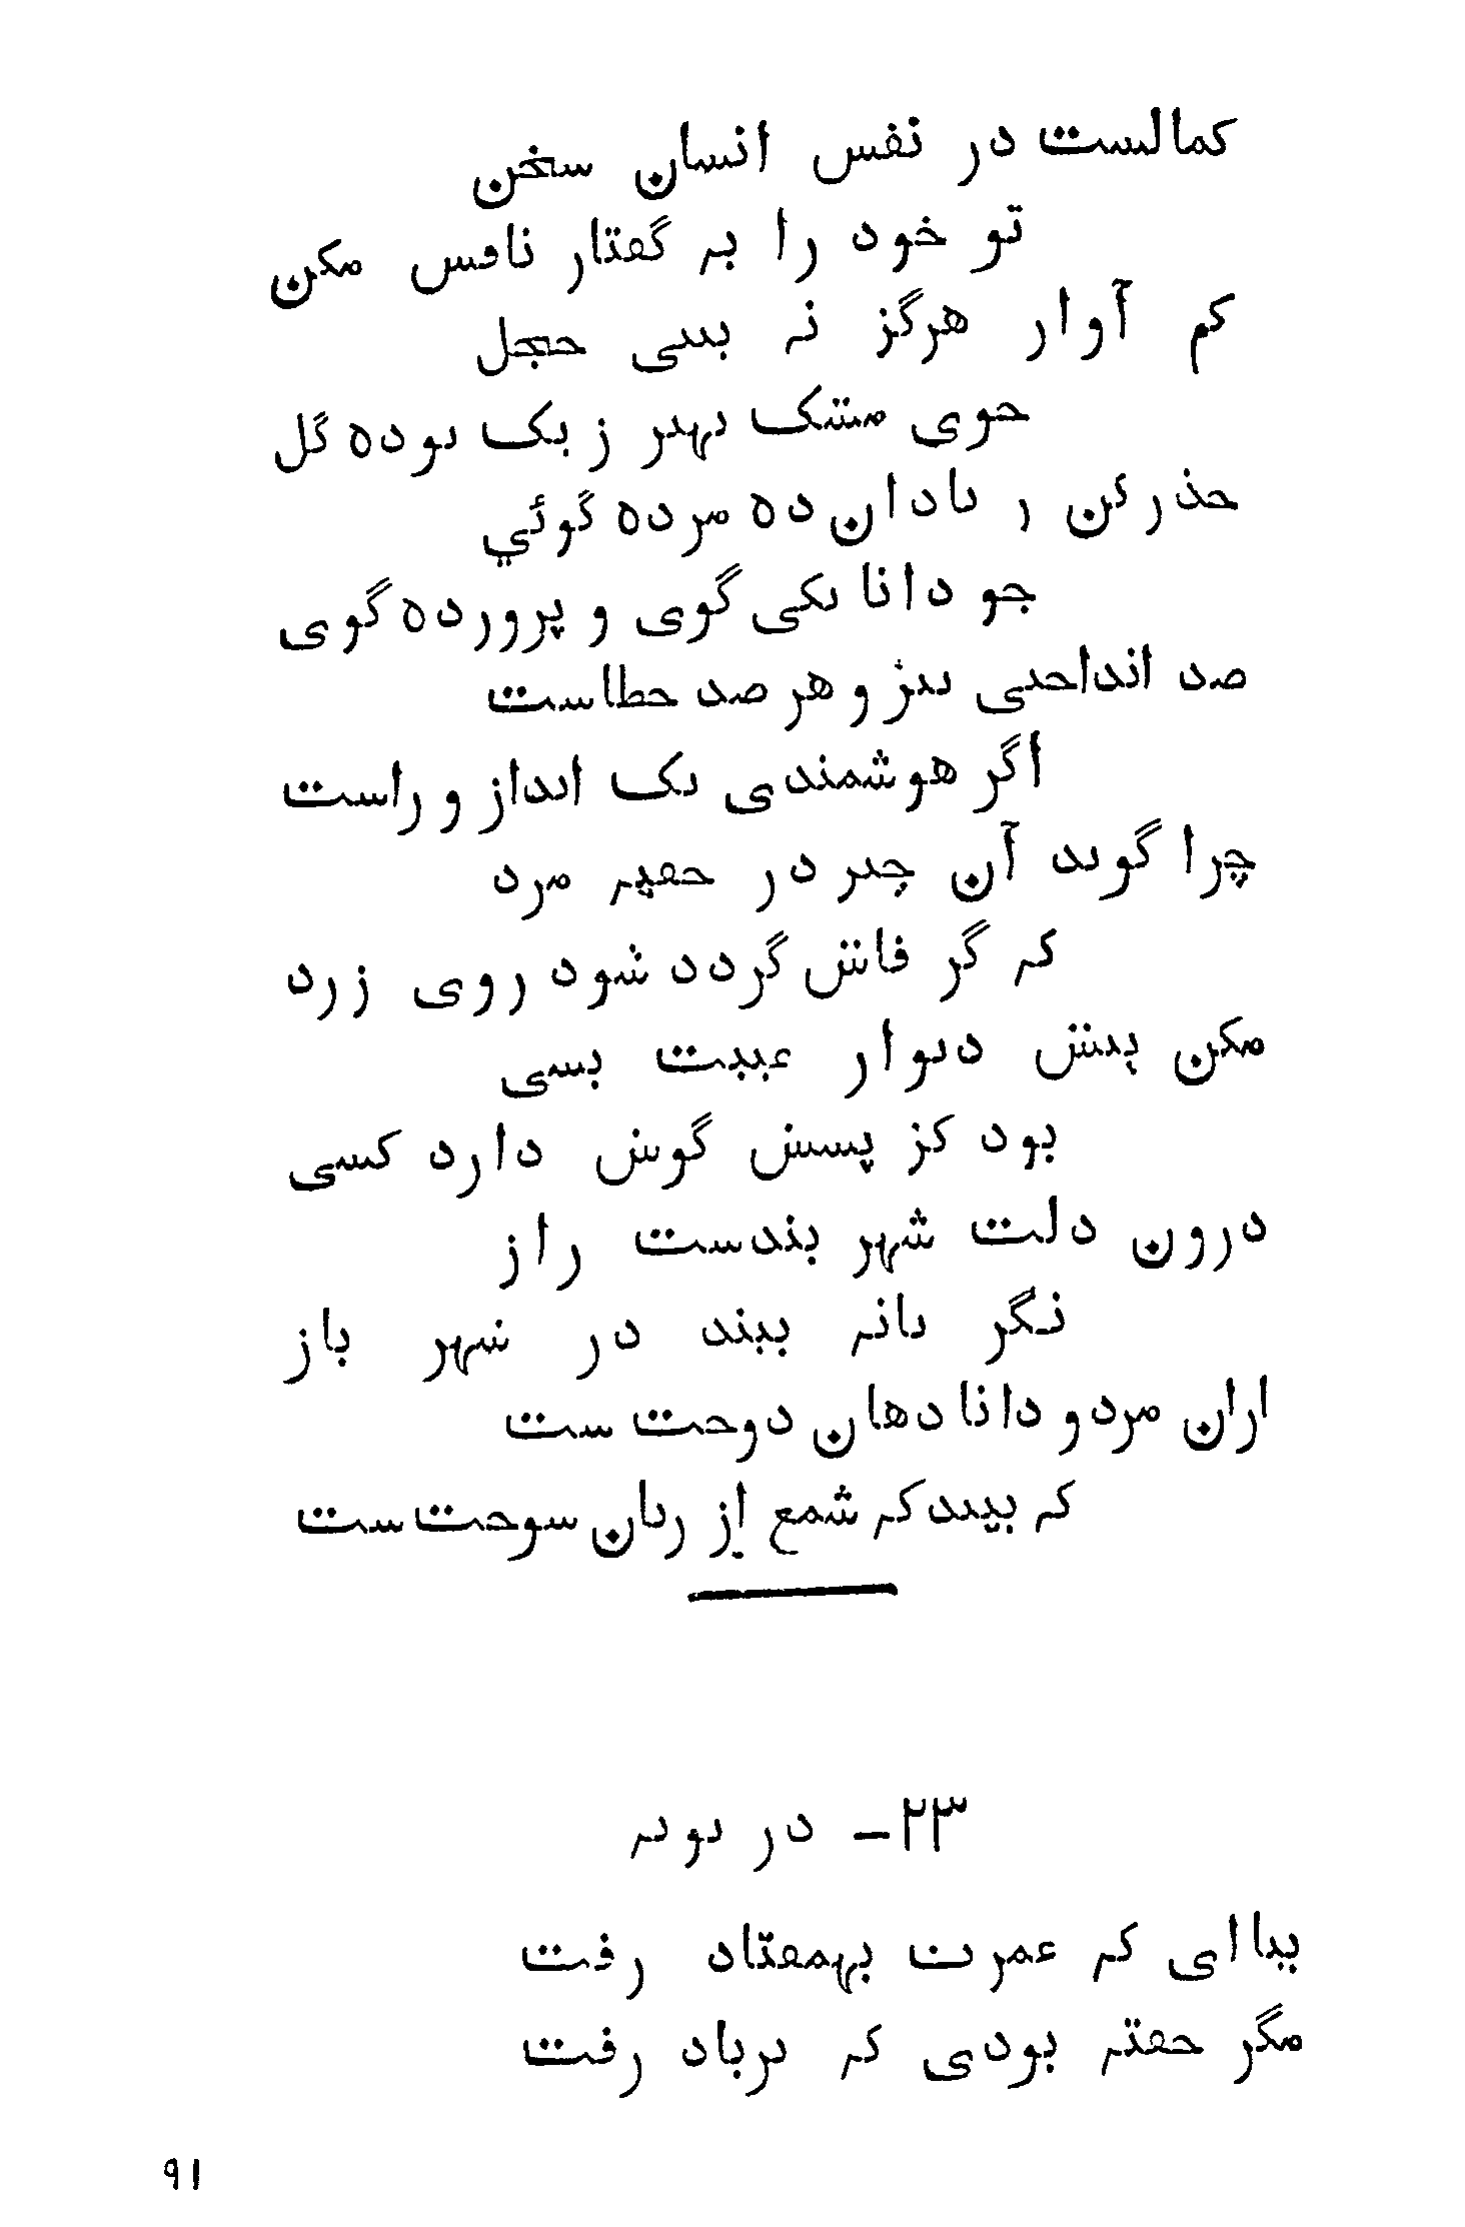 کمالست در نفس انسان سخن
تو خود را به گفتار ناقص مکن
کم آواز هرگز نه بینی خجل
جوی مشک بهتر ز یک توده گل
حذر کن ز نادان ده مرده گوئي
چو دانا یکی گوی و پرورده گوی
صد انداختی تیز و هر صد خطاست
اگر هوشمندی یک انداز و راست
چرا گوید آن چیز در خفیه مرد
که گر فاش گردد شود روی زرد
مکن پیش دیوار غیبت بسی
بود کز پسش گوش دارد کسی
درون دلت شهر بندست راز
نگر تانه بیند در شهر باز
ازان مرد و دانا دهان دوخت ست
که بیند که شمع از زبان سوخت ست
۲۳- در توبه
بیا ای که عمرت بهفتاد رفت
مگر خفته بودی که برباد رفت
۹۱